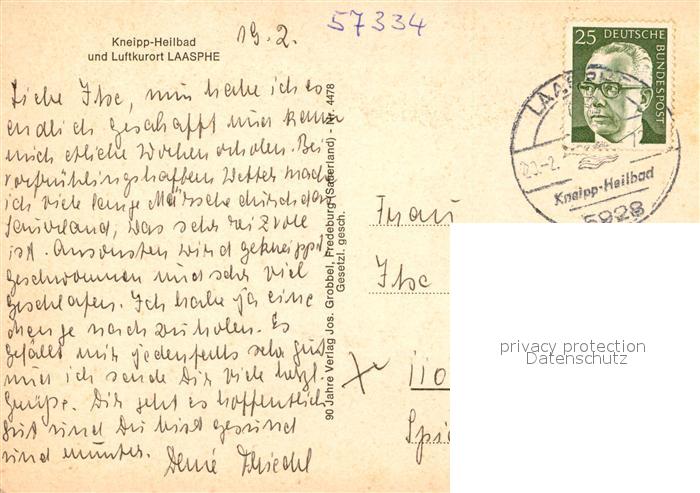 Kneipp-Heilbad
und Luftkurort LAASPHE
19. 2.
57334
Liebe Ilse, nun habe ich es
endlich geschafft und kann
mich etliche Wochen erholen. Bei
vorfrühlingshaftem Wetter mache
ich viele lange Märsche durch das
Sauerland, was sehr reizvoll
ist. Ansonsten wird gekneippt
geschwommen und sehr viel
geschlafen. Ich habe ja eine
Menge nachzuholen. Es
gefällt mir jedenfalls sehr gut
und ich sende Dir viele herzl.
Grüße. Dir geht es hoffentlich
gut und Du bist gesund
und munter. Deine
90 Jahre Verlag Jos. Grobbel, Fredeburg (Sauerland) - Nr. 4478
Gesetzl. gesch.
25 DEUTSCHE
BUNDESPOST
LAASPHE
20.-2.
Kneipp-Heilbad
5928
Frau
Ilse
110
privacy protection
Datenschutz